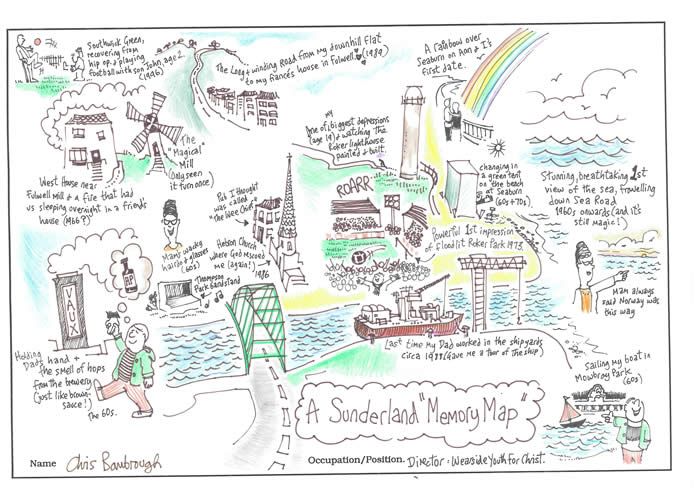 Southwick Green,
recovering from
hip op. & playing
football with son John, age 2
(1996)
The Long & winding Road from my downhill Flat
to my fiancés house in Fulwell. (1989)
A rainbow over
Seaburn on Ann & I's
first date.
The
"Magical"
Mill
(Only seen
it turn once)
West House near
Fulwell Mill & a fire that had
us sleeping overnight in a friends
house (1966?)
my
One of biggest depressions
(age 19) & watching the
Roker lighthouse
painted & built
changing in
a green tent
on the beach
at Seaburn
(60s & 70s)
Stunning, breathtaking 1st
view of the sea, travelling
down Sea Road
1960s onwards (and it's
still magic!)
ROARR
Pub I thought
was called
"The Wee Chief"
Mams wacky
hairdo & glasses
(60s)
Hebron Church
where God rescued
me (again!)
1986
Thompson
Park bandstand
Powerful 1st impression
of Floodlit Roker Park 1973.
Mam always
said Norway was
this way
VAUX
Holding
Dads hand &
the smell of hops
from the brewery
(just like brown-
sauce!)
The 60s.
Last time my Dad worked in the shipyards
circa 1988 (Gave me a tour of the ship)
Sailing my boat in
Mowbray Park
(60s)
A Sunderland "Memory Map"
Name Chris Bambrough
Occupation/Position. Director: Wearside Youth For Christ.